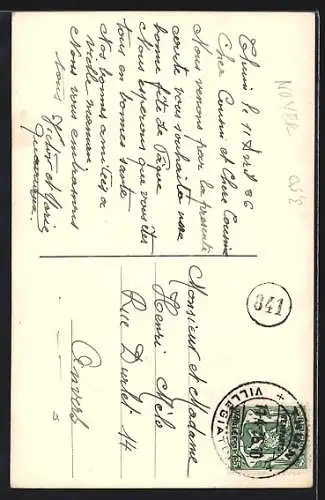 Thuin le 11 Avril 36
Cher Cousin et Chère Cousine
Nous venons par la presente
carte vous souhaiter une
bonne fête de Pâque
Nous esperons que vous êtes
tous en bonnes santé
Nos bonnes amitiées a
vieille maman
Nous vous embrassons
tous Victor et Marie
Monsieur et Madame
Henri Melo
Rue Durlet 44
Anvers
841
NOVER